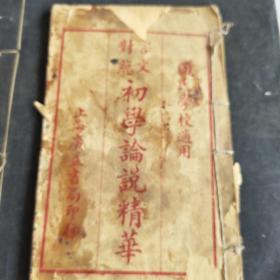 學校適用
言文
對照
初學論說精華
上海廣益書局印行